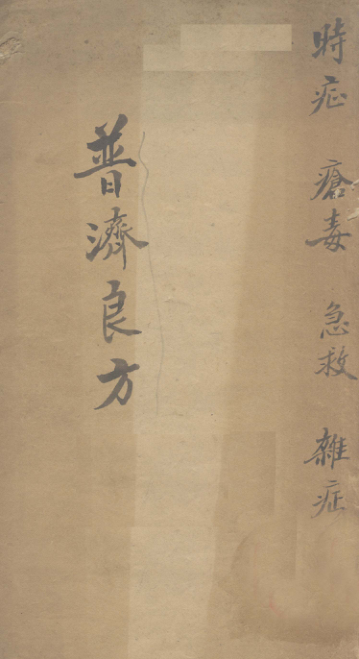 時症 瘡毒 急救 雜症
普濟良方